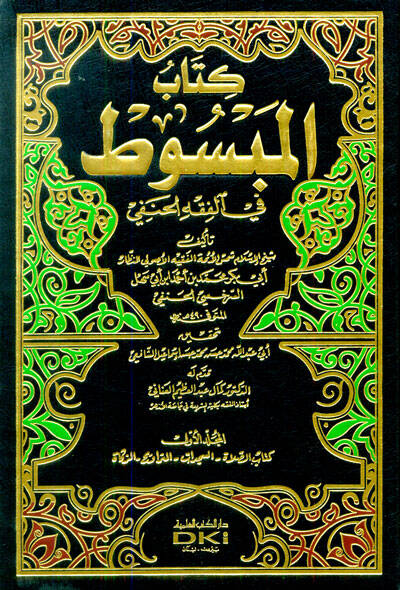 كِتَابُ
المَبْسُوط
في الفقه الحنفي
تأليف
شيخ الإسلام شمس الأئمة الفقيه الأصولي النظار
أبي بكر محمد بن أحمد بن أبي سهل
السرخسي الحنفي
المتوفى ٤٩٠ هـ
تحقيق
أبي عبد الله محمد حسن محمد حسن إسماعيل الشافعي
قدم له
الدكتور كمال عبد العظيم العناني
أستاذ الفقه بكلية الشريعة في جامعة الأزهر
المجلد الأول
كتاب الصلاة - السجدات - التراويح - الزكاة
دار الكتب العلمية
DKi
بيروت - لبنان